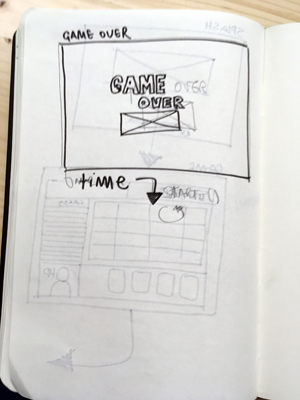 GAME OVER
GAME
OVER
time
START